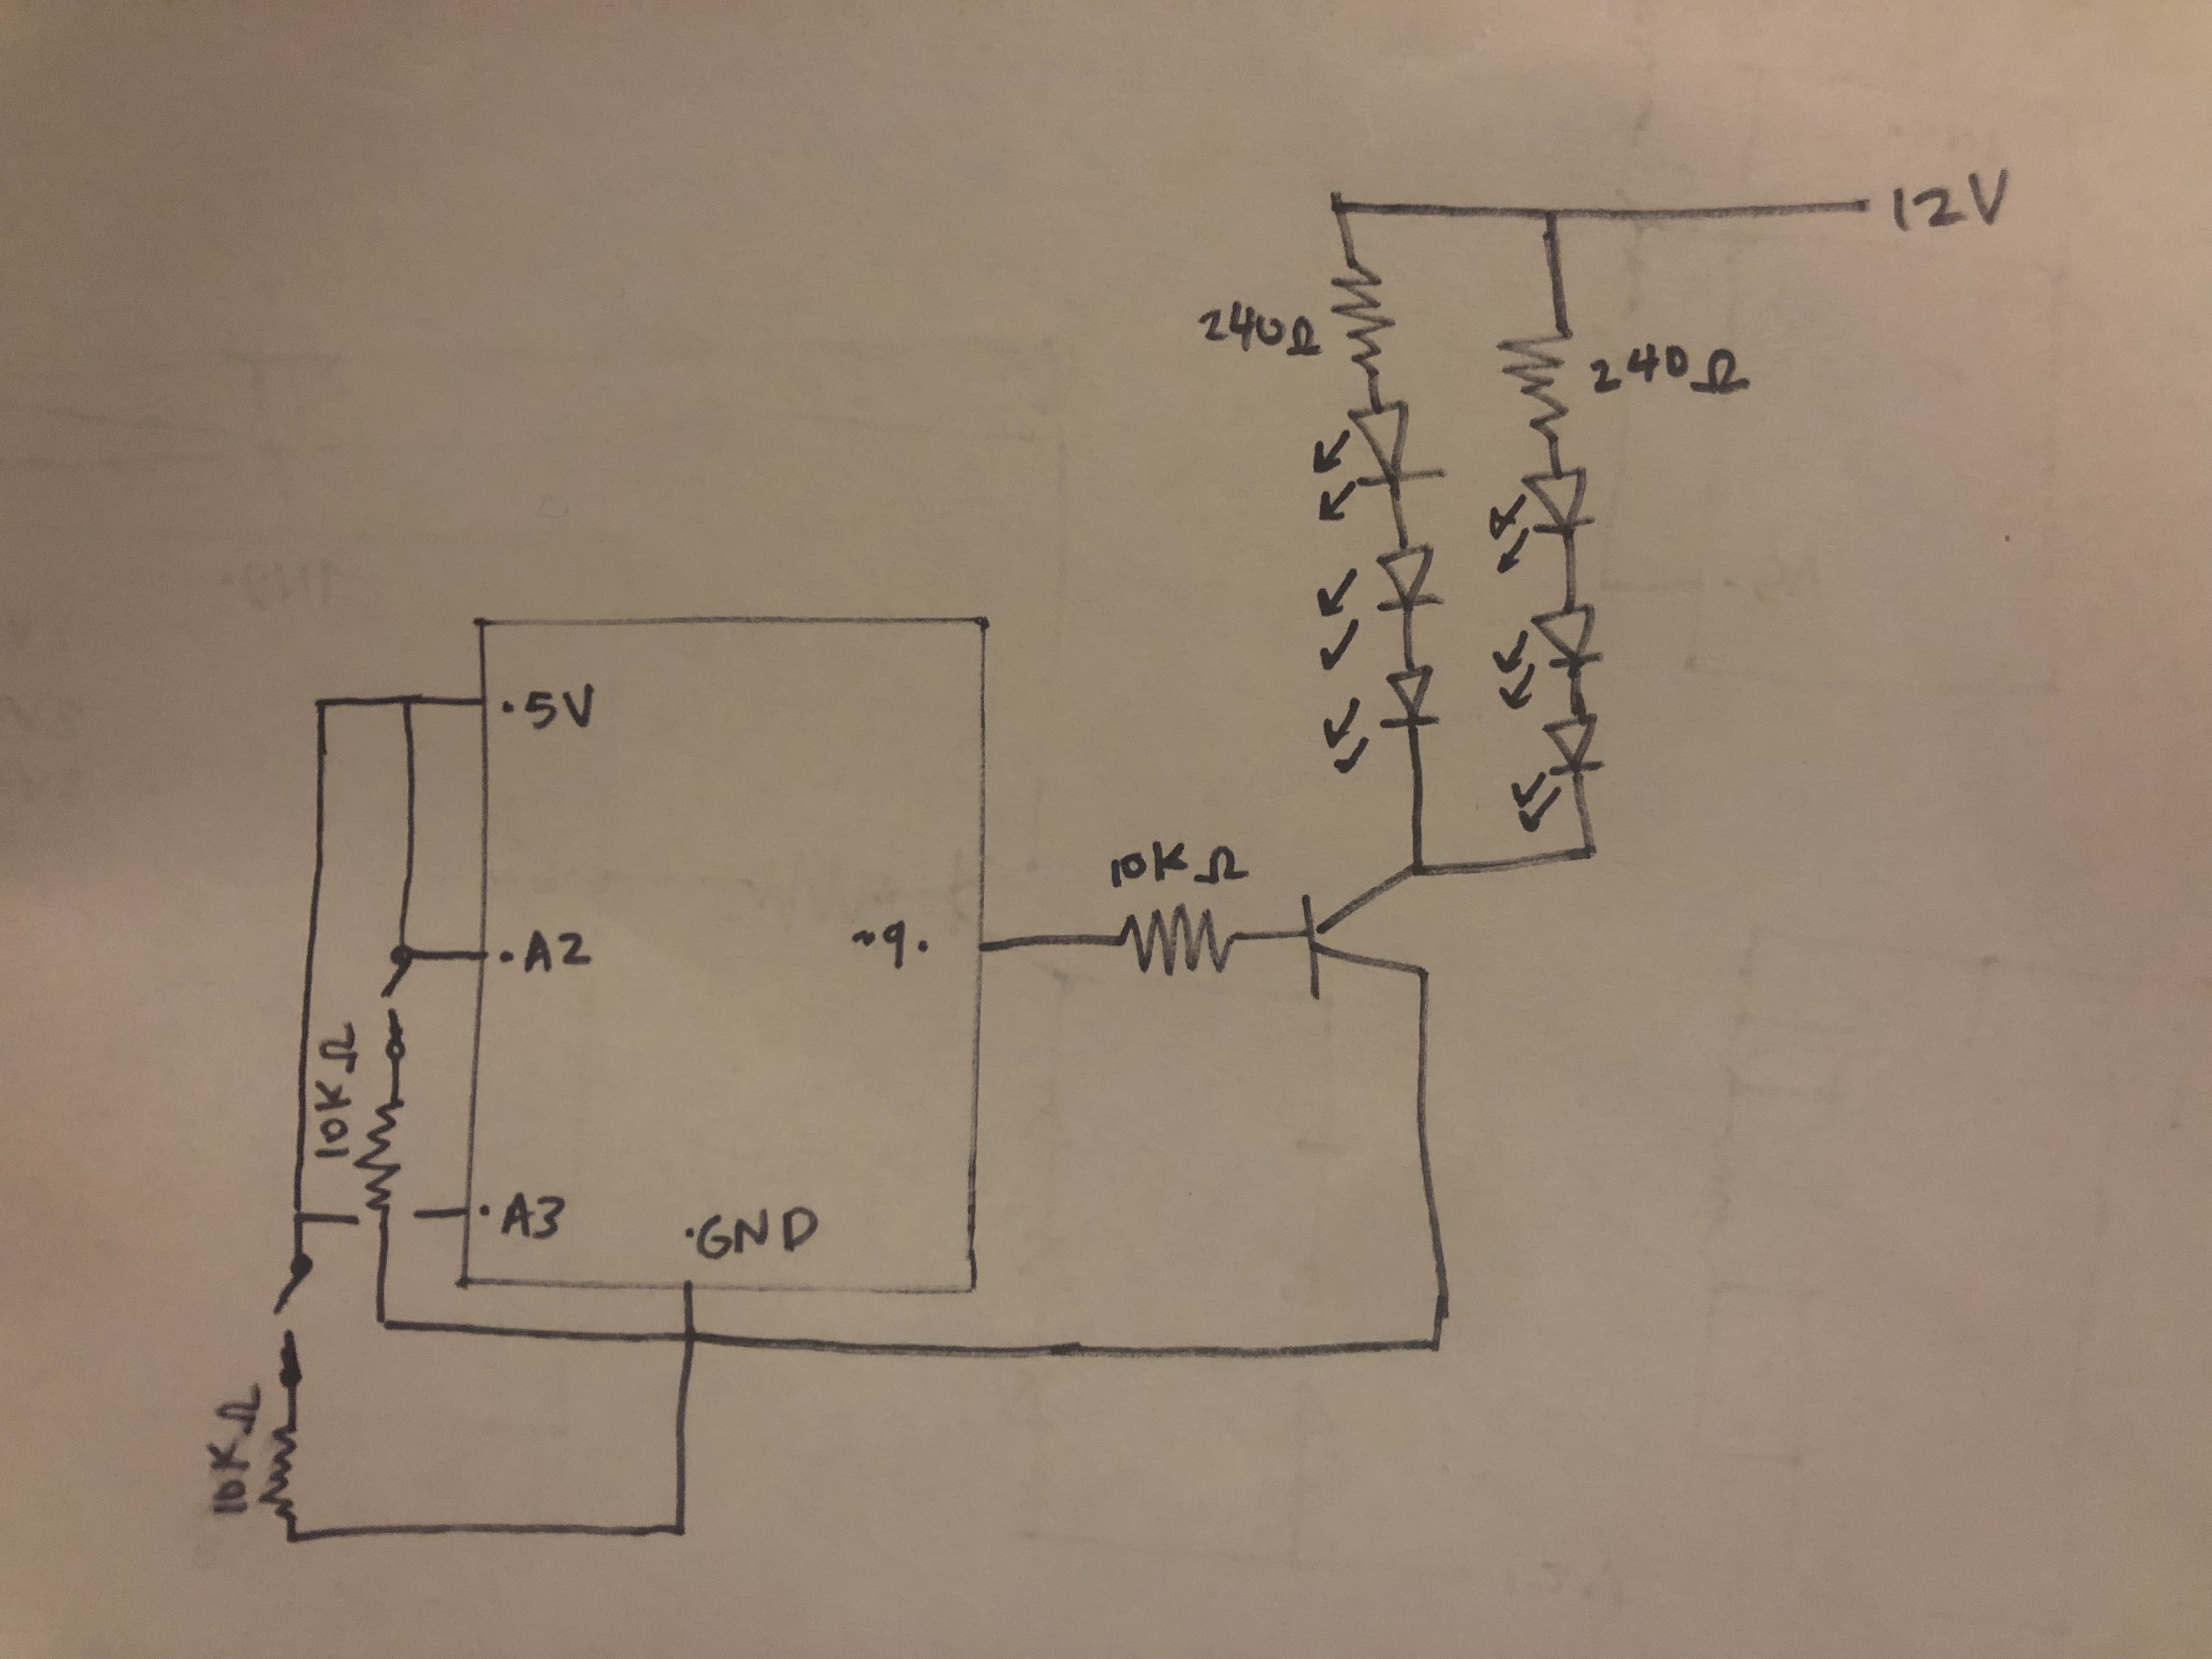 12V
240Ω
240Ω
·5V
10KΩ
·A2
~9·
10KΩ
·A3
·GND
10KΩ